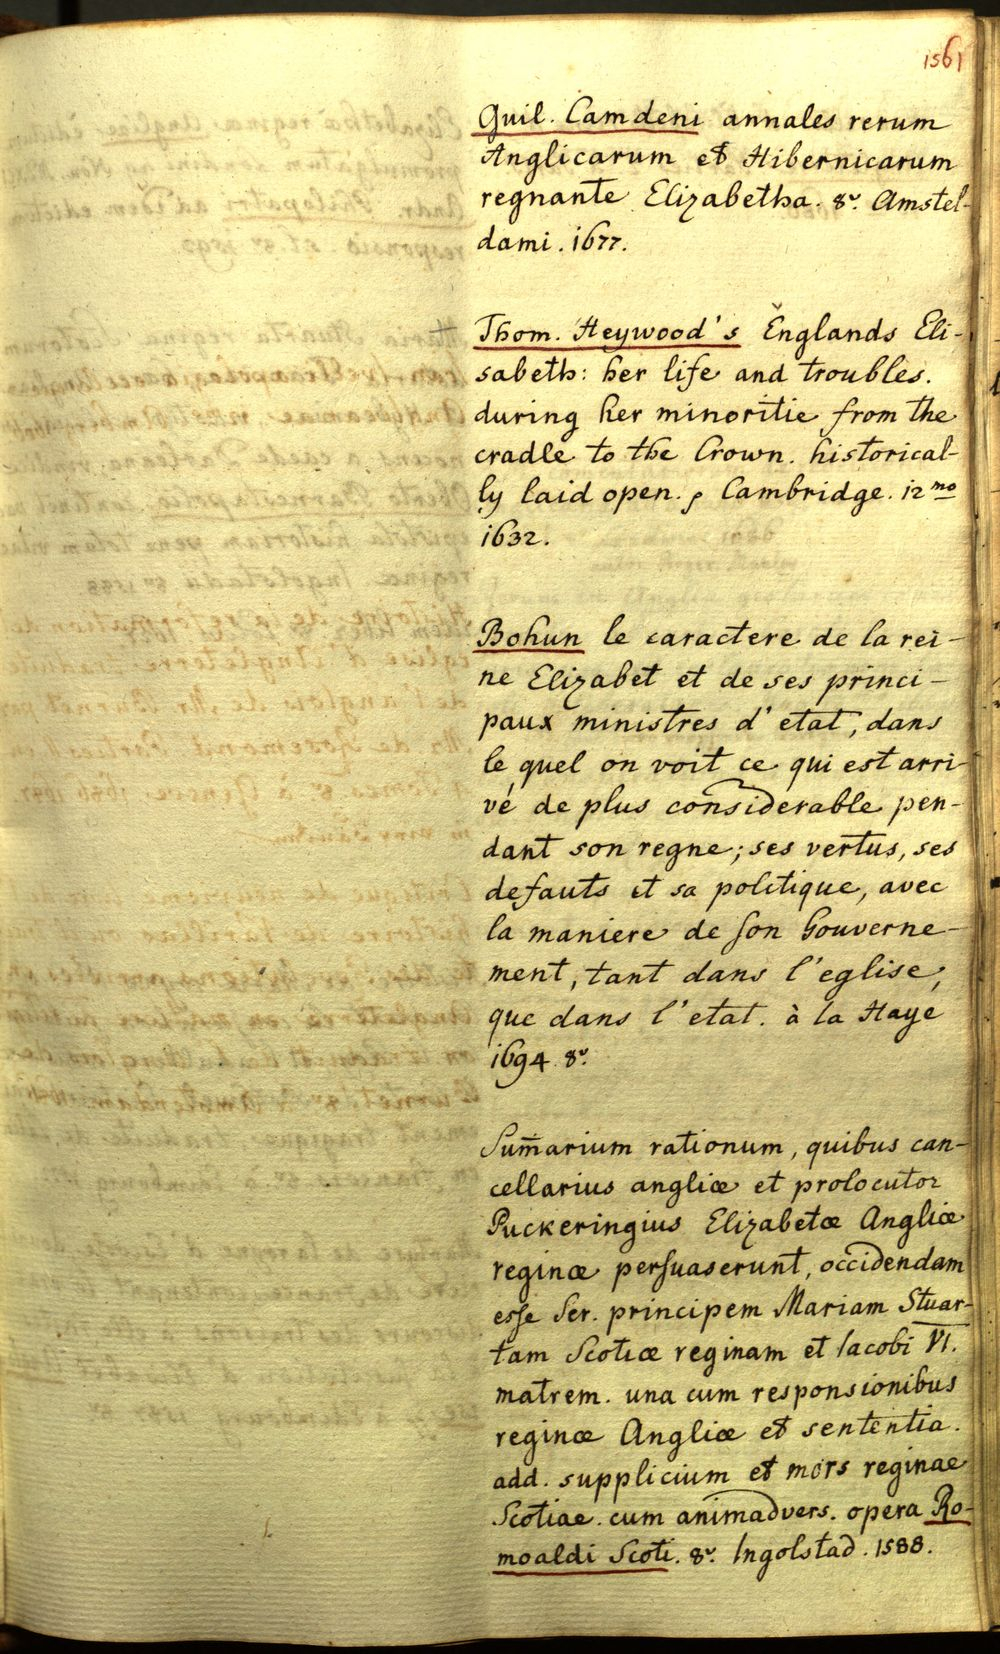 1561
Guil. Camdeni annales rerum
Anglicarum et Hibernicarum
regnante Elizabetha. 8º. Amstel-
dami. 1677.
Thom. Heywood's Englands Eli-
sabeth: her life and troubles.
during her minoritie from the
cradle to the Crown. historical-
ly laid open. Cambridge. 12mo
1632.
Bohun le caractere de la rei-
ne Elizabet et de ses princi-
paux ministres d'etat, dans
le quel on voit ce qui est arri-
vé de plus considerable pen-
dant son regne; ses vertus, ses
defauts et sa politique, avec
la maniere de son Gouverne-
ment, tant dans l'eglise,
que dans l'etat. à la Haye
1694. 8º.
Sum̄arium rationum, quibus can-
cellarius angliæ et prolocutor
Puckeringius Elizabetæ Angliæ
reginæ persuaserunt, occidendam
esse Ser. principem Mariam Stuar-
tam Scotiæ reginam et Iacobi VI.
matrem. una cum responsionibus
reginæ Angliæ et sententia.
add. supplicium et mors reginae
Scotiae. cum animadvers. opera Ro-
moaldi Scoti. 8º. Ingolstad. 1588.